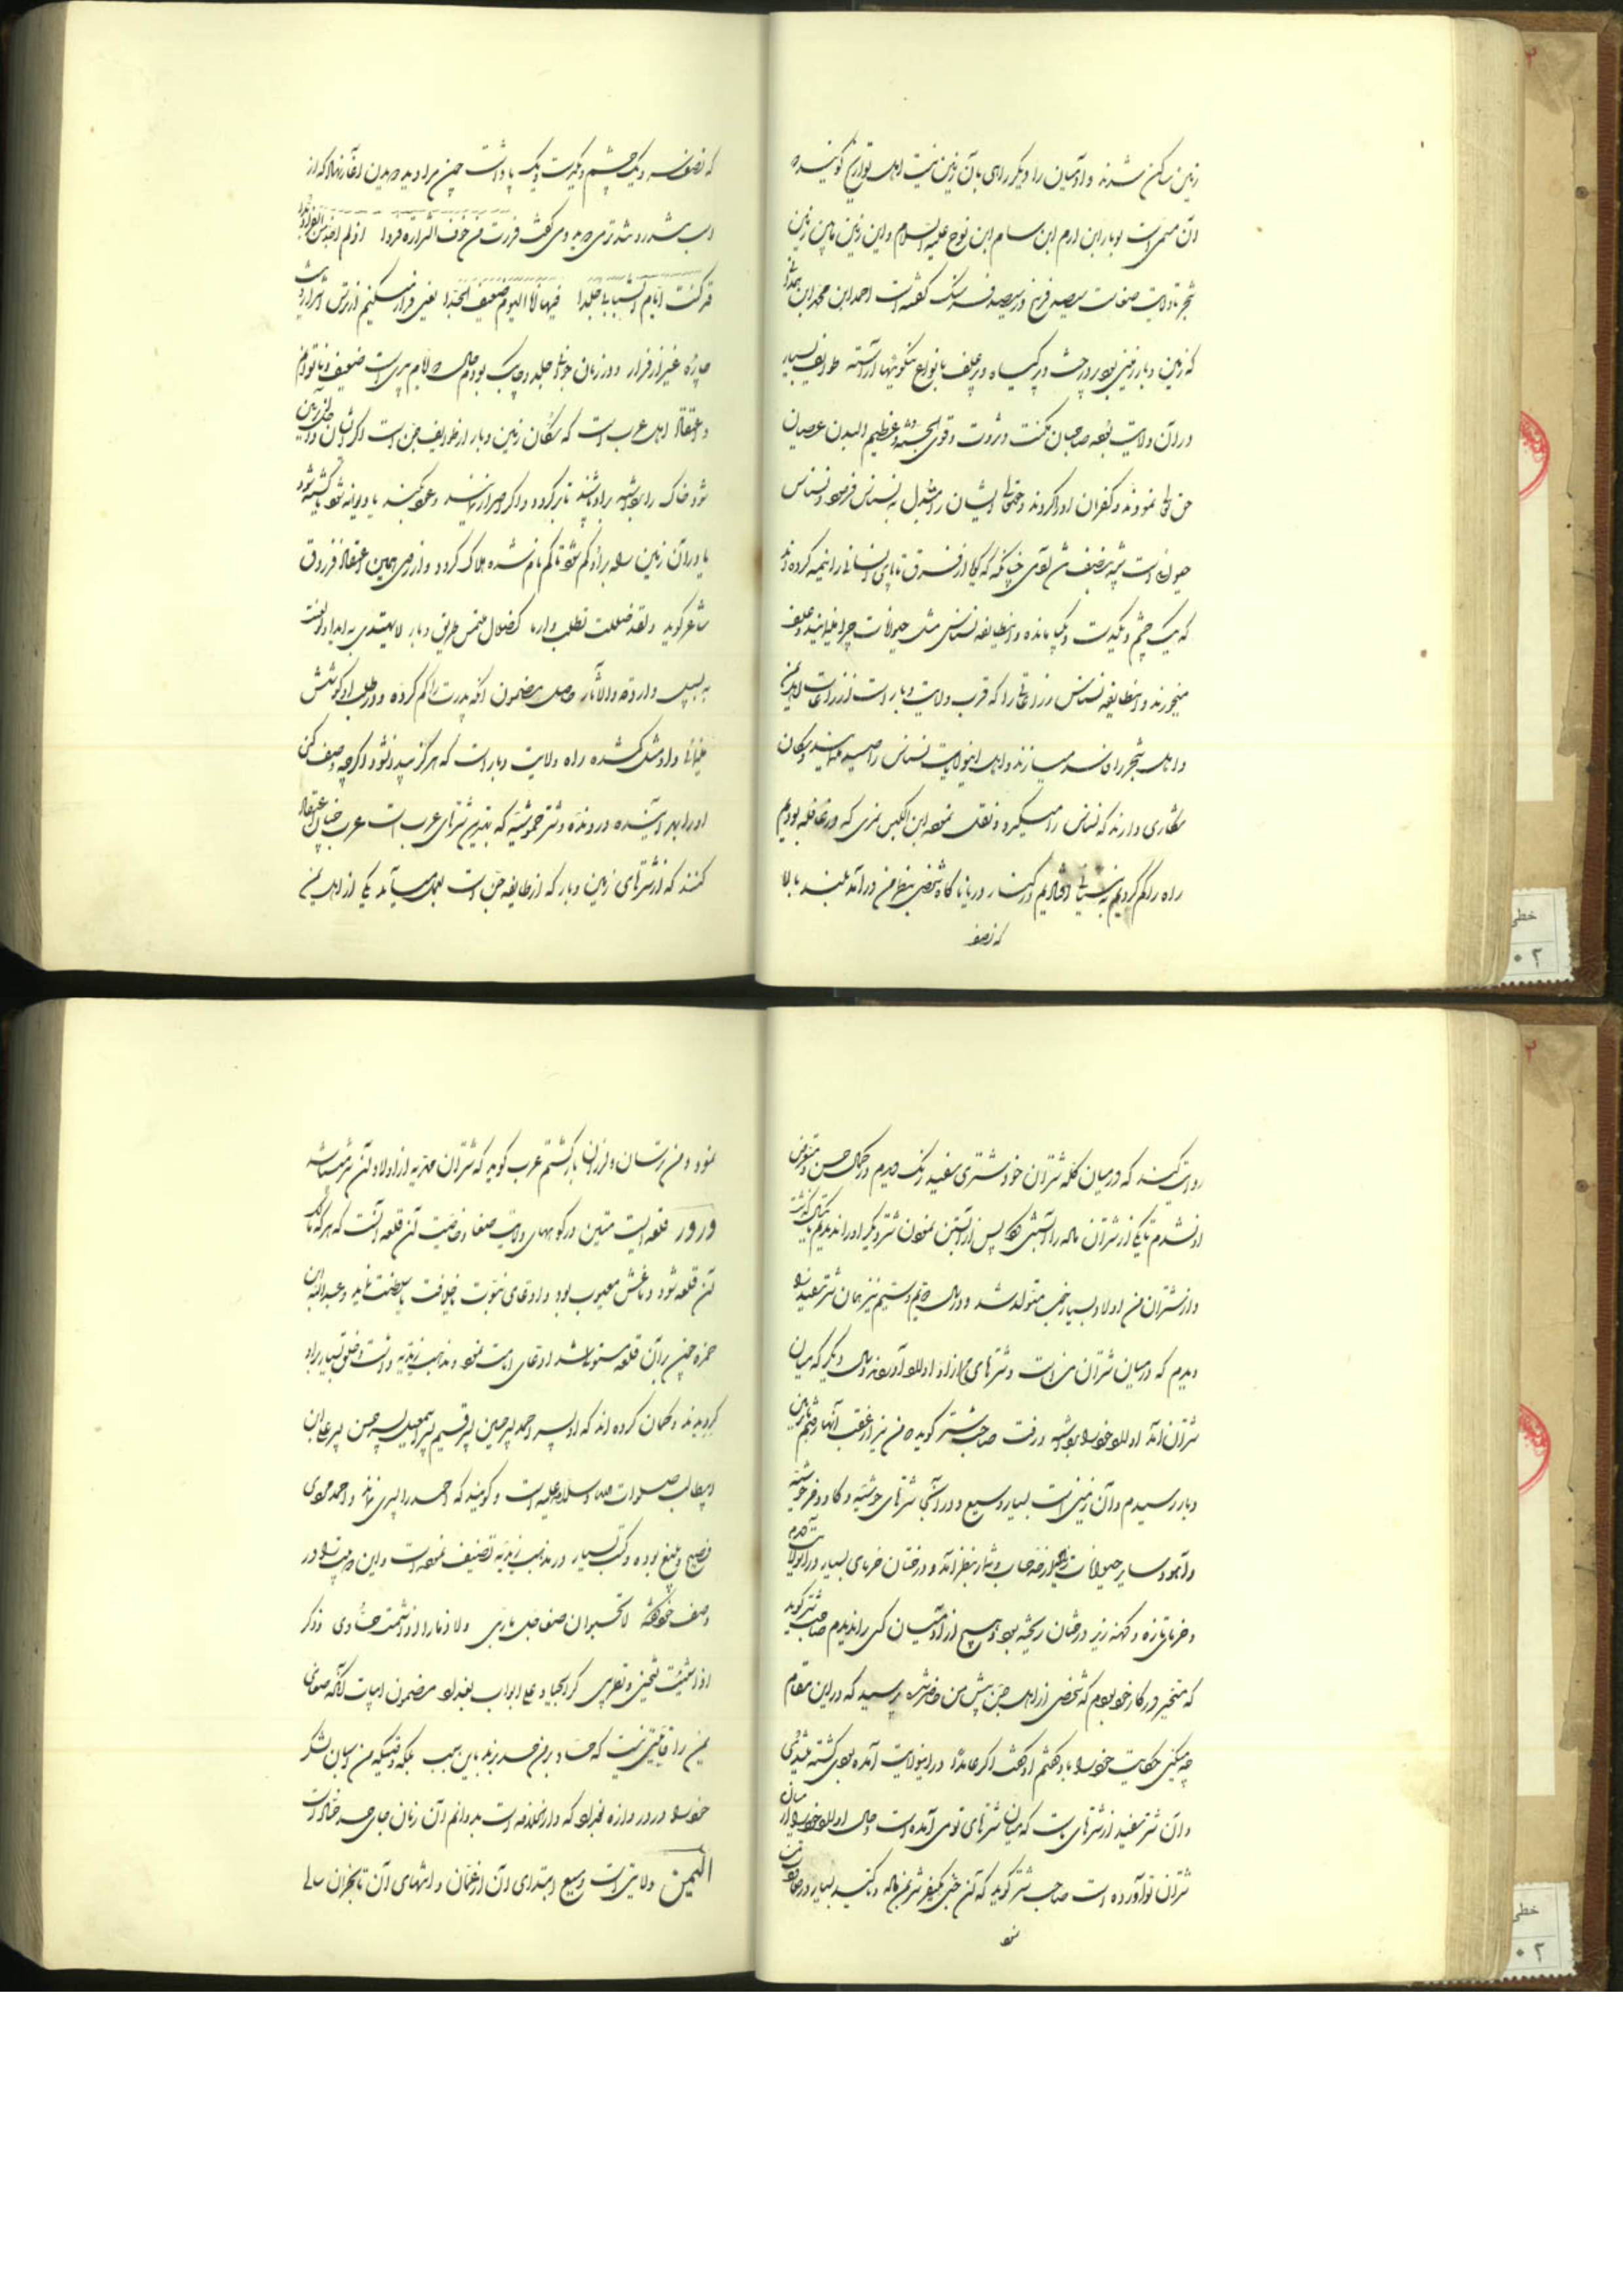 زمین ساکن شدند و آدمیان را دیگر راهی بآن زمین نیست اهل تواریخ گویند که
آن مسمی است بوبار ابن ارم ابن سام ابن نوح علیه السلام و این زمین مابین زمین
شجر تا ولایت صنعا سیصد فرسخ در سیصد فرسنگ گفته است احمد ابن محمد ابن همدانی
که زمین وبار زمینی بود پر درخت و پر گیاه و پر علف بانواع نیکوئیها آراسته طوایف بسیار
در آن ولایت بوده صاحبان مکنت و ثروت و قوی الجثه و عظیم البدن عصیان
حق تعالی نمودند و کفران او را کردند و حقتعالی ایشان را مبدل به نسناس فرمود و نسناس
حیوانی است شبیه بنصف تن آدمی چنانکه که گویا از فرق تا پای انسانی را دو نیمه کرده اند
که یک چشم و یکدست و یکپا مانده و این طایفه نسناس مثل حیوانات چرا مینمایند و علف
میخورند و این طایفه نسناس زراعاتی را که قرب ولایت وبار است از زراعات اهل یمن
و اهل شجر را فاسد میسازند و اهل این ولایت نسناس را صید مینمایند و سگان
شکاری دارند که نسناس را میگیرد و نقل نموده ابن الکیس نمری که در قافله بودیم
راه را گم کردیم به نیستانی افتادیم در کنار دریا ناگاه شخصی بنظر من در آمد بلند بالا
که نصف
که نصف سر و یک چشم و یکدست و یک پا داشت چون مرا دید دویدن آغاز نهاد که از
اسب تندرو تندتر می دوید و می گفت فررت من خوف الشراة فردا اذ لم اجد من الفرار بدا
قد کنت ایام الشباب جلدا فیها انا الیوم ضعیف الجدا یعنی فرار میکنم از ترس اشرار و نیست
چاره غیر از فرار و در زمان جوانی جلد و چابک بودم حال که ایام پیری است ضعیف و ناتوانم
و اعتقاد اهل عرب است که ساکنان زمین وبار از طوایف جن است اگر انسان داخل آن زمین
شود خاک را بر او پاشند تا برگردد و اگر
یا در آن زمین راه بر او گم شود تا گمنام شده هلاک گردد و از روی همین اعتقاد فرزدق
شاعر گوید ولقد ضللت تطلب دارما کضلال ملتمس طریق وبار لا یهتدی به ابدا ولو نعت
به سبیل وارده والآثار حاصل مضمون آنکه پدرت را گم کرده و در طلب او کوشش
مینمائی و او مثل گمشده راه ولایت وبار است که هرگز پیدا نشود اگرچه وصف کنی
او را بهر آینده و رونده و شتر حوشیه که بهترین شترهای عرب است عرب چنان اعتقاد
کنند که از شترهای زمین وبار که از طایفه جن است بعمل میآید یکی از اهل یمن
روایت کند که در میان گله شتران خود شتری سفید رنگ دیدم در کمال حسن و متعرض
او نشدم تا یکی از شتران ماده را آبستن کرد پس از آبستن نمودن شتر دیگر او را ندیدم تا یکسال گذشت
و از شتران من اولاد بسیار خوب متولد شد و در سال دویم و سیم نیز همان شتر سفید را
دیدم که در میان شتران من است و شترهای ما از او اولاد آوردند و سال دیگر که میان
شتران آمد اولاد خود را برداشته و رفت صاحب شتر گوید که من نیز از عقب آنها رفتم تا بزمین
وبار رسیدم و آن زمینی است بسیار وسیع و در آنجا شترهای حوشیه و گاو و خر حوشیه
و آهو و سایر حیوانات زیاده از حساب و شمار بنظر آمد و درختان خرمای بسیار در آن ولایت دیدم
و خرمای تازه و کهنه زیر درختان ریخته بود و هیچ از آدمیان کسی را ندیدم صاحب شتر گوید
که متحیر در کار خود بودم که شخصی از اهل جن پیش من حاضر شده پرسید که در این مقام
چه میکنی حکایت خود را باو گفتم او گفت اگر عامدا در این ولایت آمده بودی کشته میشدی
و آن شتر سفید از شترهای ماست که میان شترهای تو می آمده است و حال اولاد خود را از میان
شتران تو آورده است صاحب شتر گوید که آن جنی
نمود
نمود و من از ایشان و از آنجا برگشتم عرب گوید که شتران مهریه از اولاد آن شتر میباشد
ورور قلعه ایست متین در کوههای ولایت صنعا و خاصیت آن قلعه آنست که هر که مالک
آن قلعه شود دماغش معیوب بود و ادعای نبوت یا خلافت یا سلطنت نماید و عبدالله ابن
حمزه چون بر آن قلعه مستولی شد ادعای امامت نمود و مذهب زیدیه داشت و خلق بسیار بر او
گرویدند و گمان کرده اند که او پسر احمد پسر حسین پسر قسیم پسر اسمعیل پسر حسن پسر علی ابن
ابیطالب صلوات الله و سلامه علیه است و گویند که احمد را پسری نماند و احمد مردی
فصیح و بلیغ بوده و کتب بسیار در مذهب زیدیه تصنیف نموده است و این دو بیت را در
وصف خود گفته لا تحسبوا ان صنعا جل ماربی ولا ذمار اذا اشمت حسادی واذکر
اذا شئت تشجینی وتطربی کر الجیاد علی ابواب بغداد مضمون ابیات آنکه صنعای
یمن را قابلیتی نیست که حساد بر من حسد برند باین سبب بلکه وقتیکه من اسبان لشکر
خود را در دروازه بغداد که دارالخلافه است بدوانم آن زمان جای حسد حساد است
الیمن ولایتی است وسیع ابتدای آن از عمان و انتهای آن تا نجران سالی